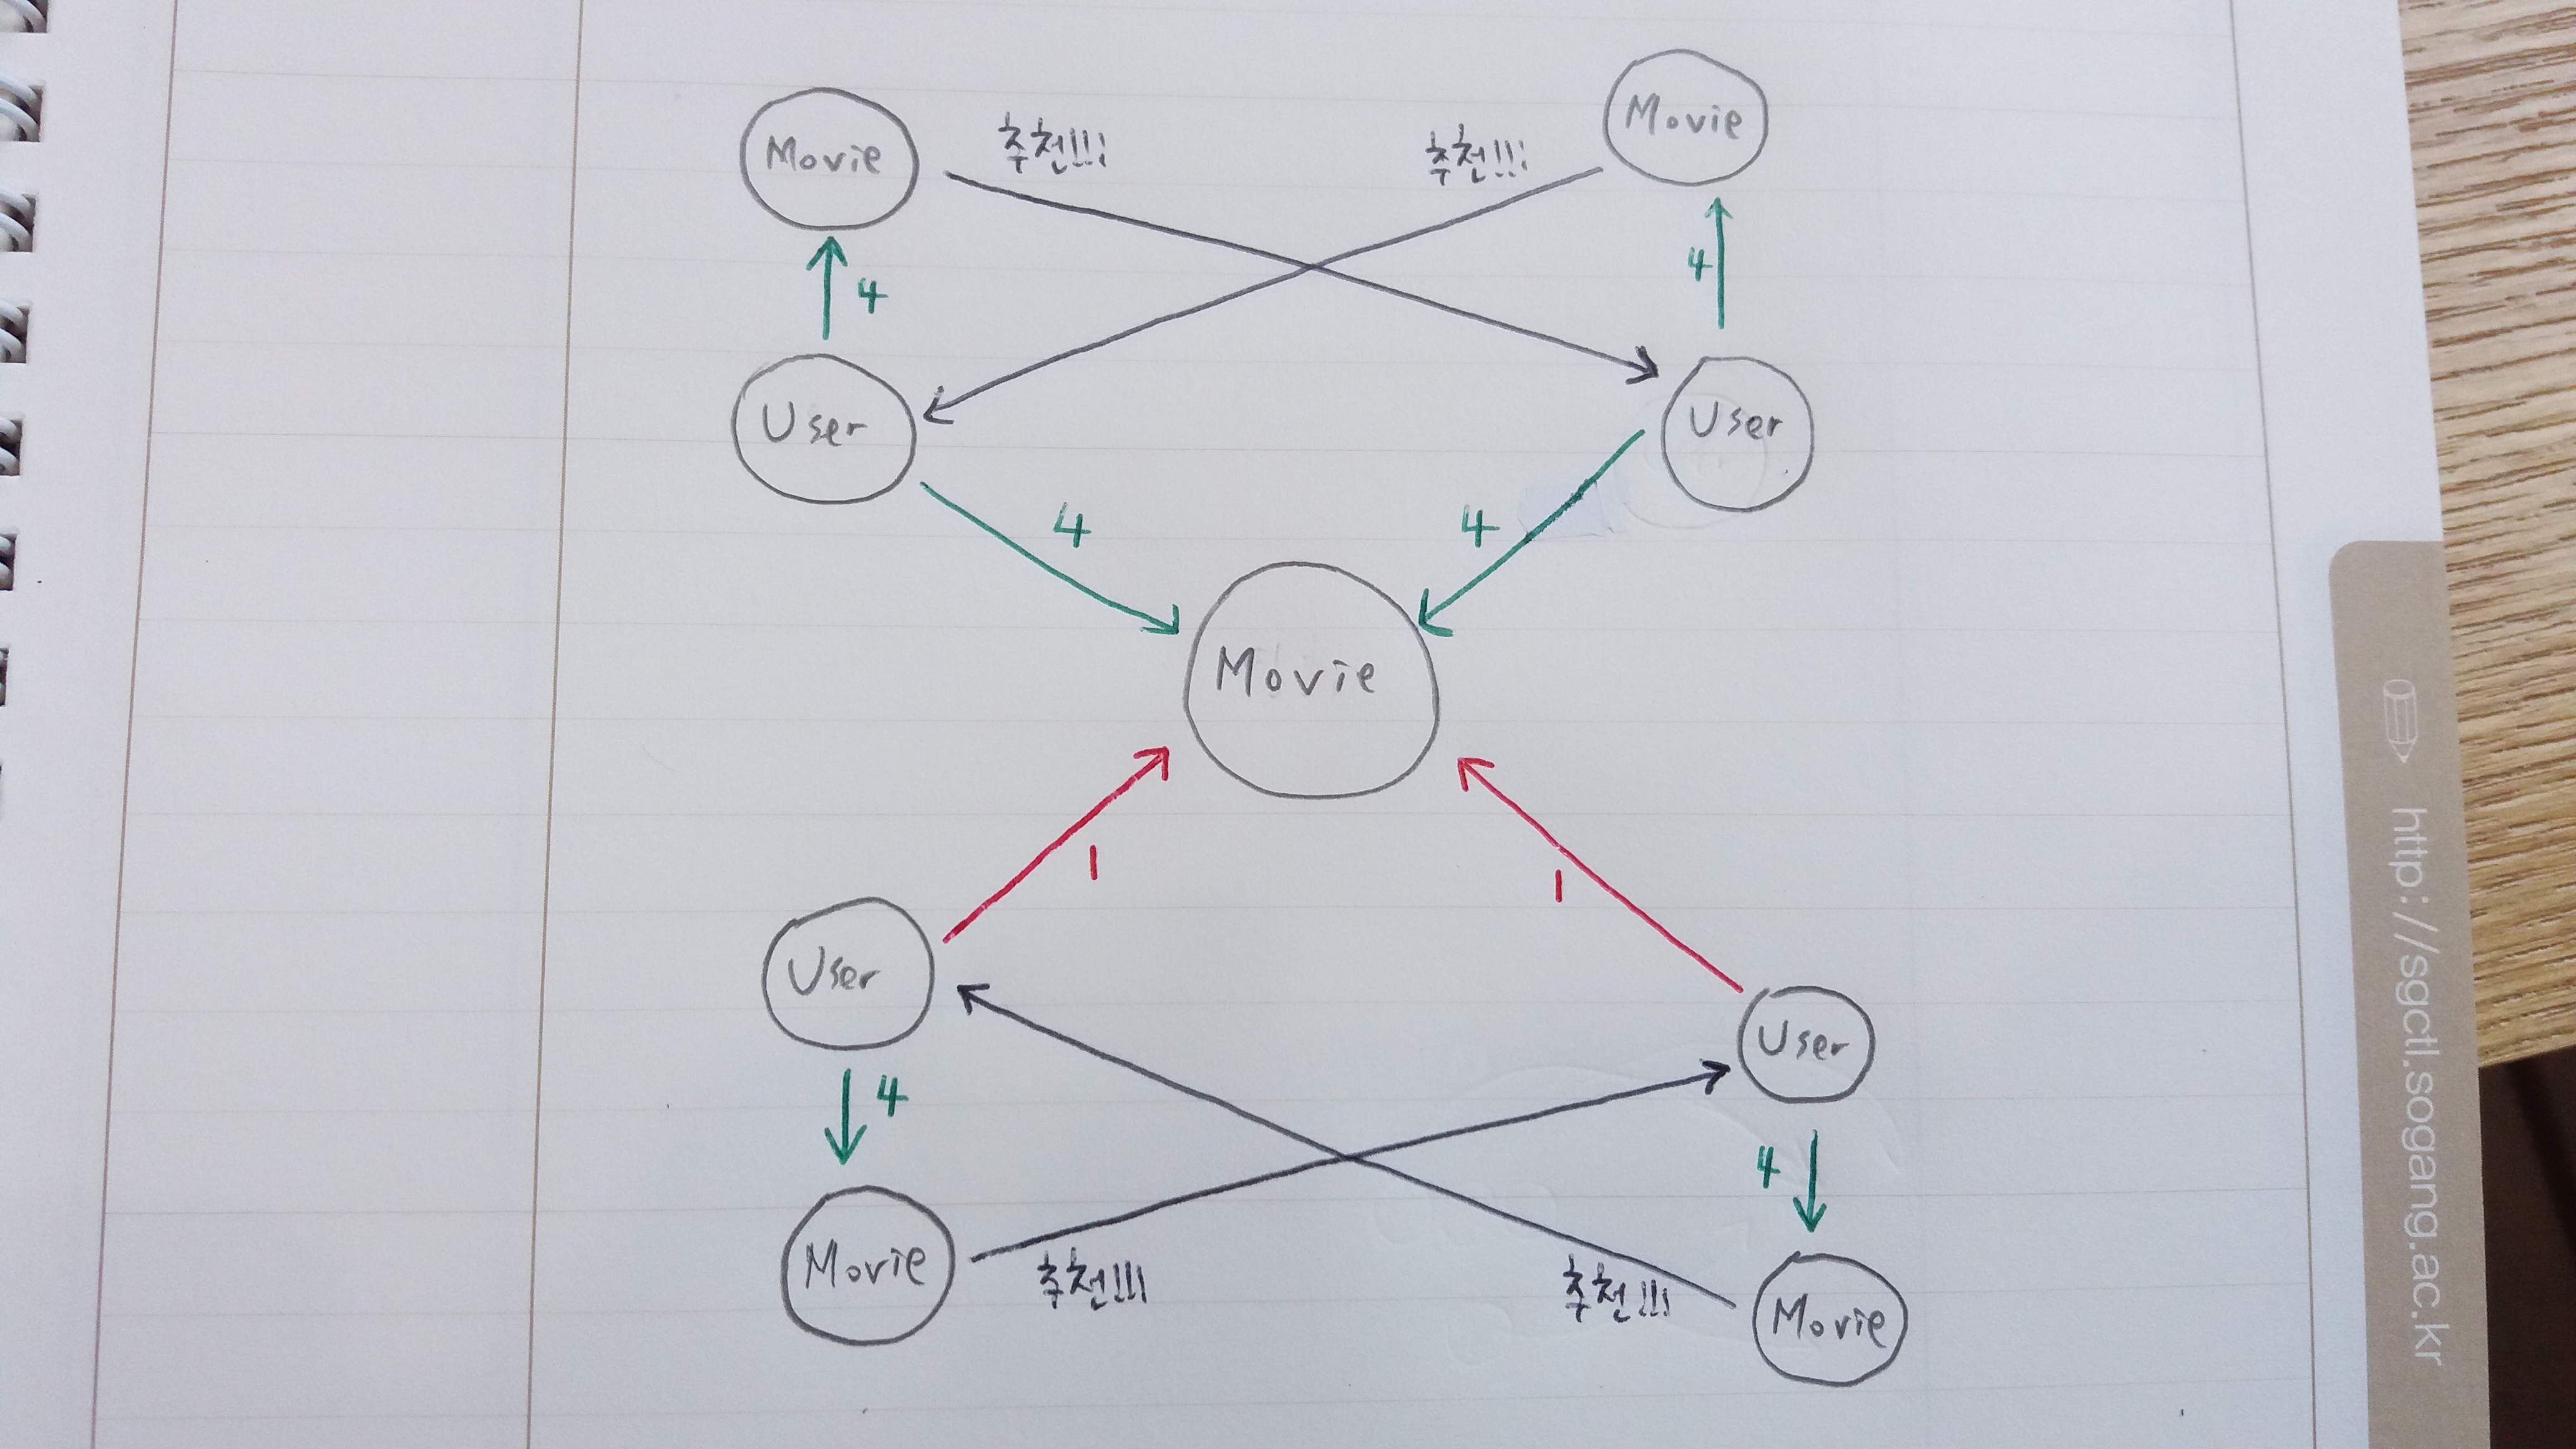 Movie
추천!!!
추천!!!
Movie
4
4
User
User
4
4
Movie
1
1
User
User
4
4
Movie
추천!!!
추천!!!
Movie
http://sgctl.sogang.ac.kr